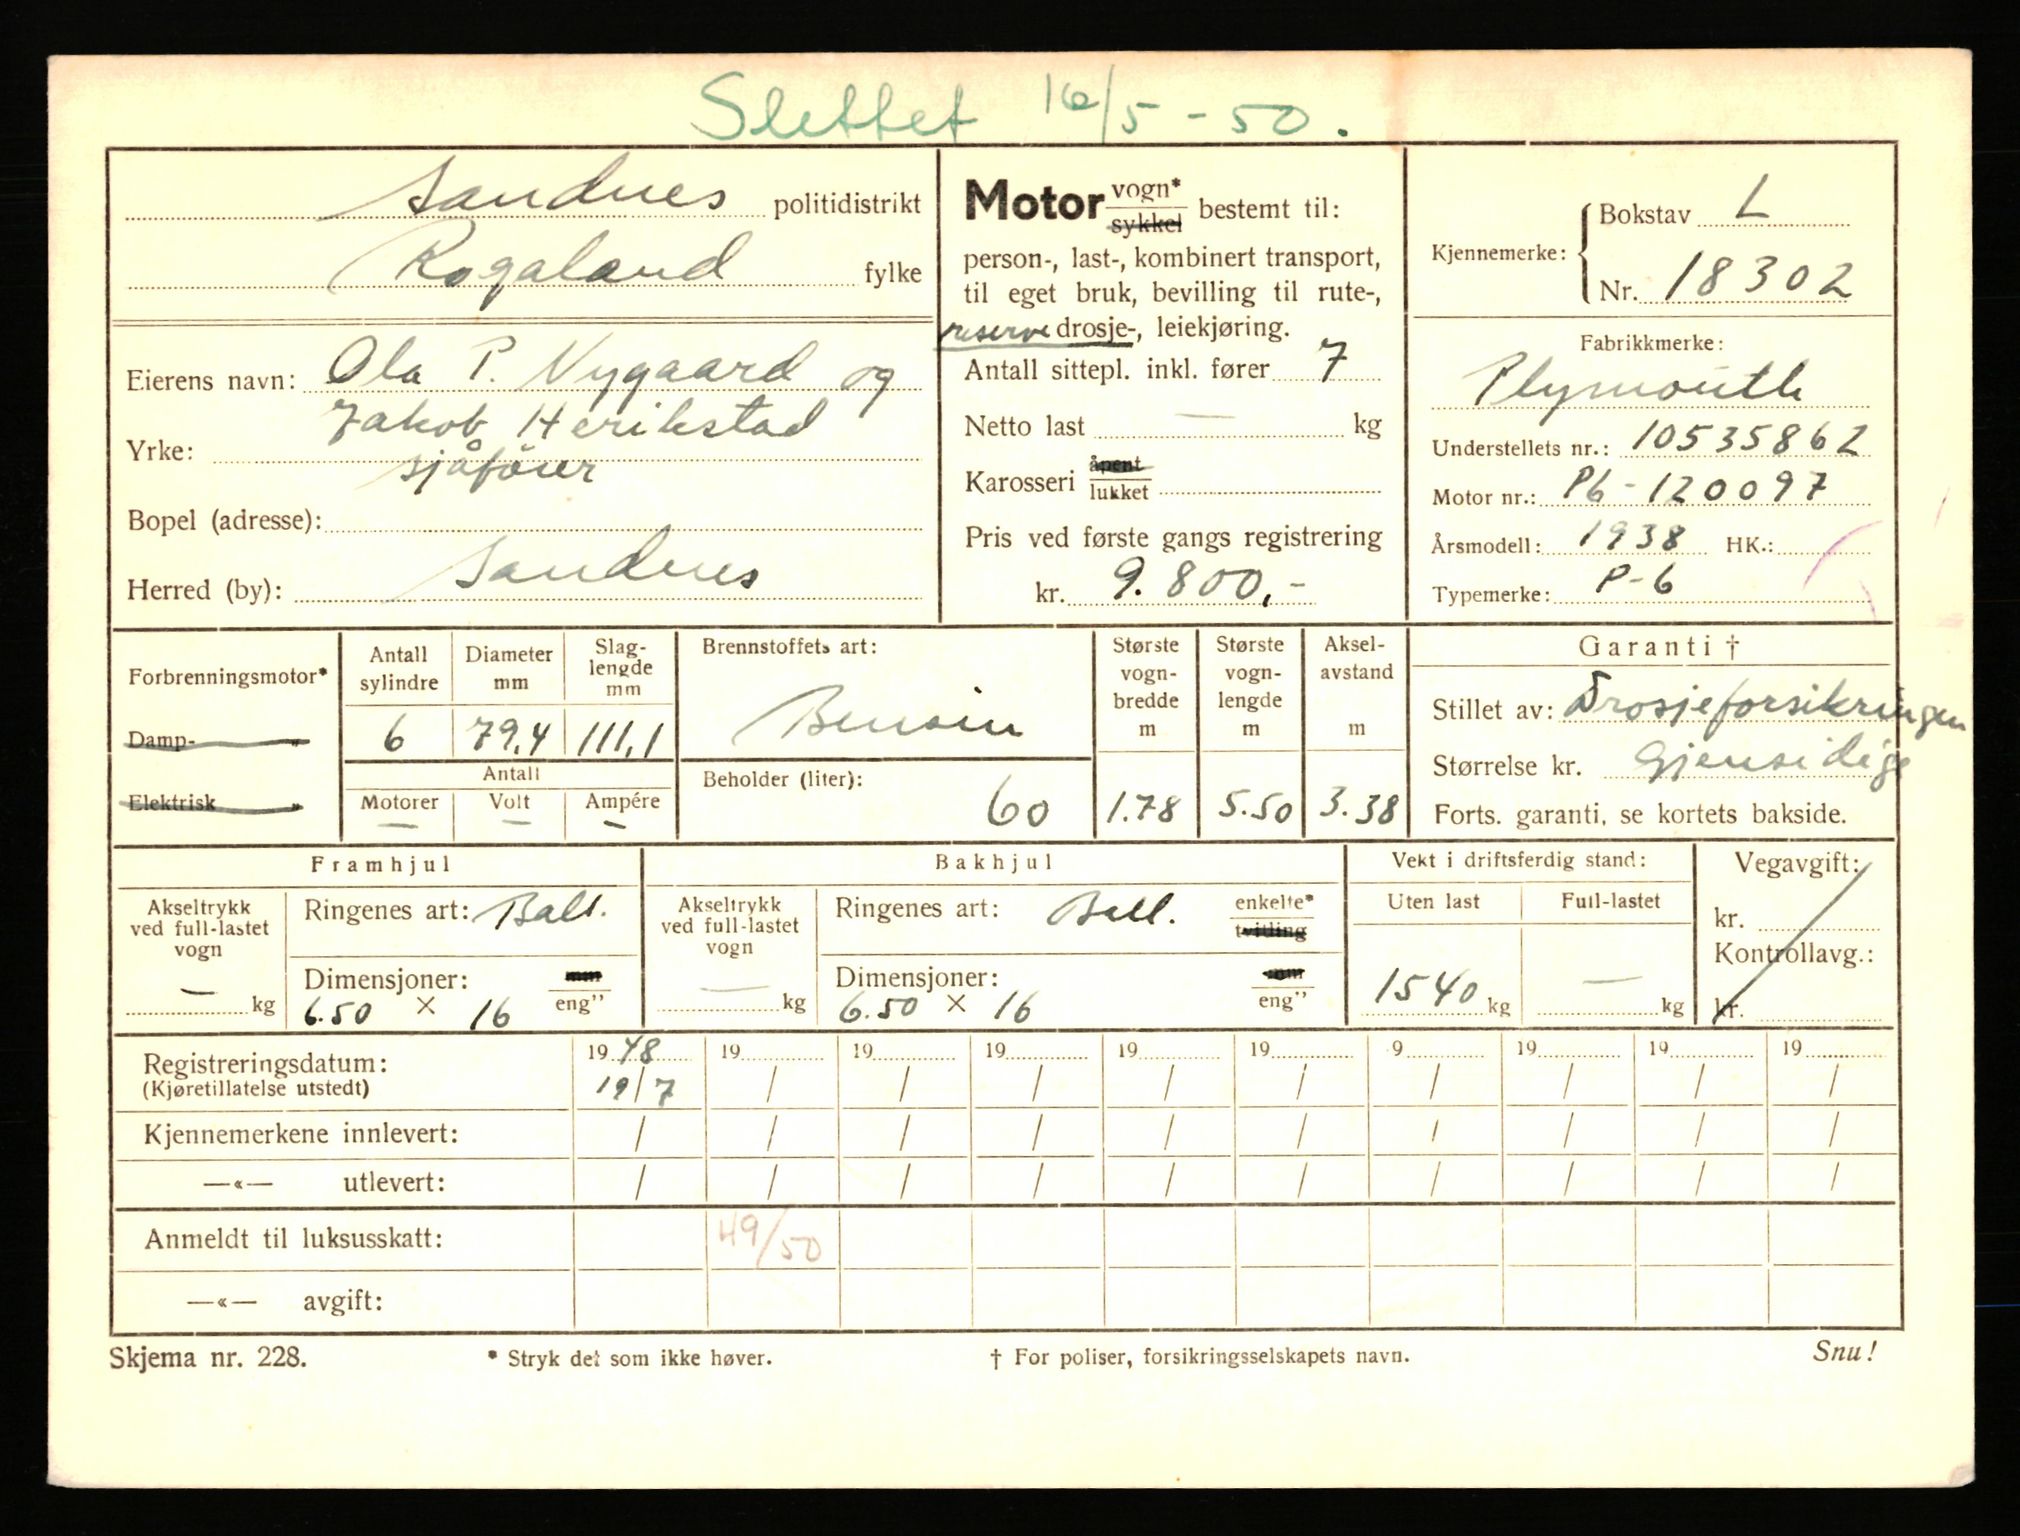 Slettet 16/5 - 50.
Sandnes politidistrikt
Rogaland fylke
Eierens navn: Ola P. Nygaard og
Jakob Herikstad
Yrke: sjåfører
Bopel (adresse):
Herred (by): Sandnes
Motor vogn* sykkel bestemt til:
person-, last-, kombinert transport,
til eget bruk, bevilling til rute-,
reserve drosje-, leiekjøring.
Antall sittepl. inkl. fører 7
Netto last — kg
Karosseri åpent lukket
Pris ved første gangs registrering
kr. 9.800,-
Kjennemerke: Bokstav L
Nr. 18302
Fabrikkmerke:
Plymouth
Understellets nr.: 10535862
Motor nr.: P6-120097
Årsmodell: 1938 HK.:
Typemerke: P-6
Forbrenningsmotor*
Damp- „
Elektrisk „
Antall sylindre 6
Diameter mm 79,4
Slag-lengde mm 111,1
Antall
Motorer — Volt — Ampére —
Brennstoffets art:
Bensin
Beholder (liter): 60
Største vogn-bredde m 1.78
Største vogn-lengde m 5.50
Aksel-avstand m 3.38
Garanti †
Stillet av: Drosjeforsikringen
Størrelse kr. Gjensidige
Forts. garanti, se kortets bakside.
Framhjul
Akseltrykk ved full-lastet vogn — kg
Ringenes art: Ball.
Dimensjoner: mm
6.50 × 16 eng"
Bakhjul
Akseltrykk ved full-lastet vogn — kg
Ringenes art: Ball. enkelte* tvilling
Dimensjoner: mm
6.50 × 16 eng"
Vekt i driftsferdig stand:
Uten last Full-lastet
1540 kg — kg
Vegavgift:
kr.
Kontrollavg.:
kr.
Registreringsdatum: 1948 19 19 19 19 19 9 19 19 19
(Kjøretillatelse utstedt) 19/7 / / / / / / / / /
Kjennemerkene innlevert: / / / / / / / / / /
—«— utlevert: / / / / / / / / / /
Anmeldt til luksusskatt: 49/50
—«— avgift:
Skjema nr. 228. * Stryk det som ikke høver. † For poliser, forsikringsselskapets navn. Snu!